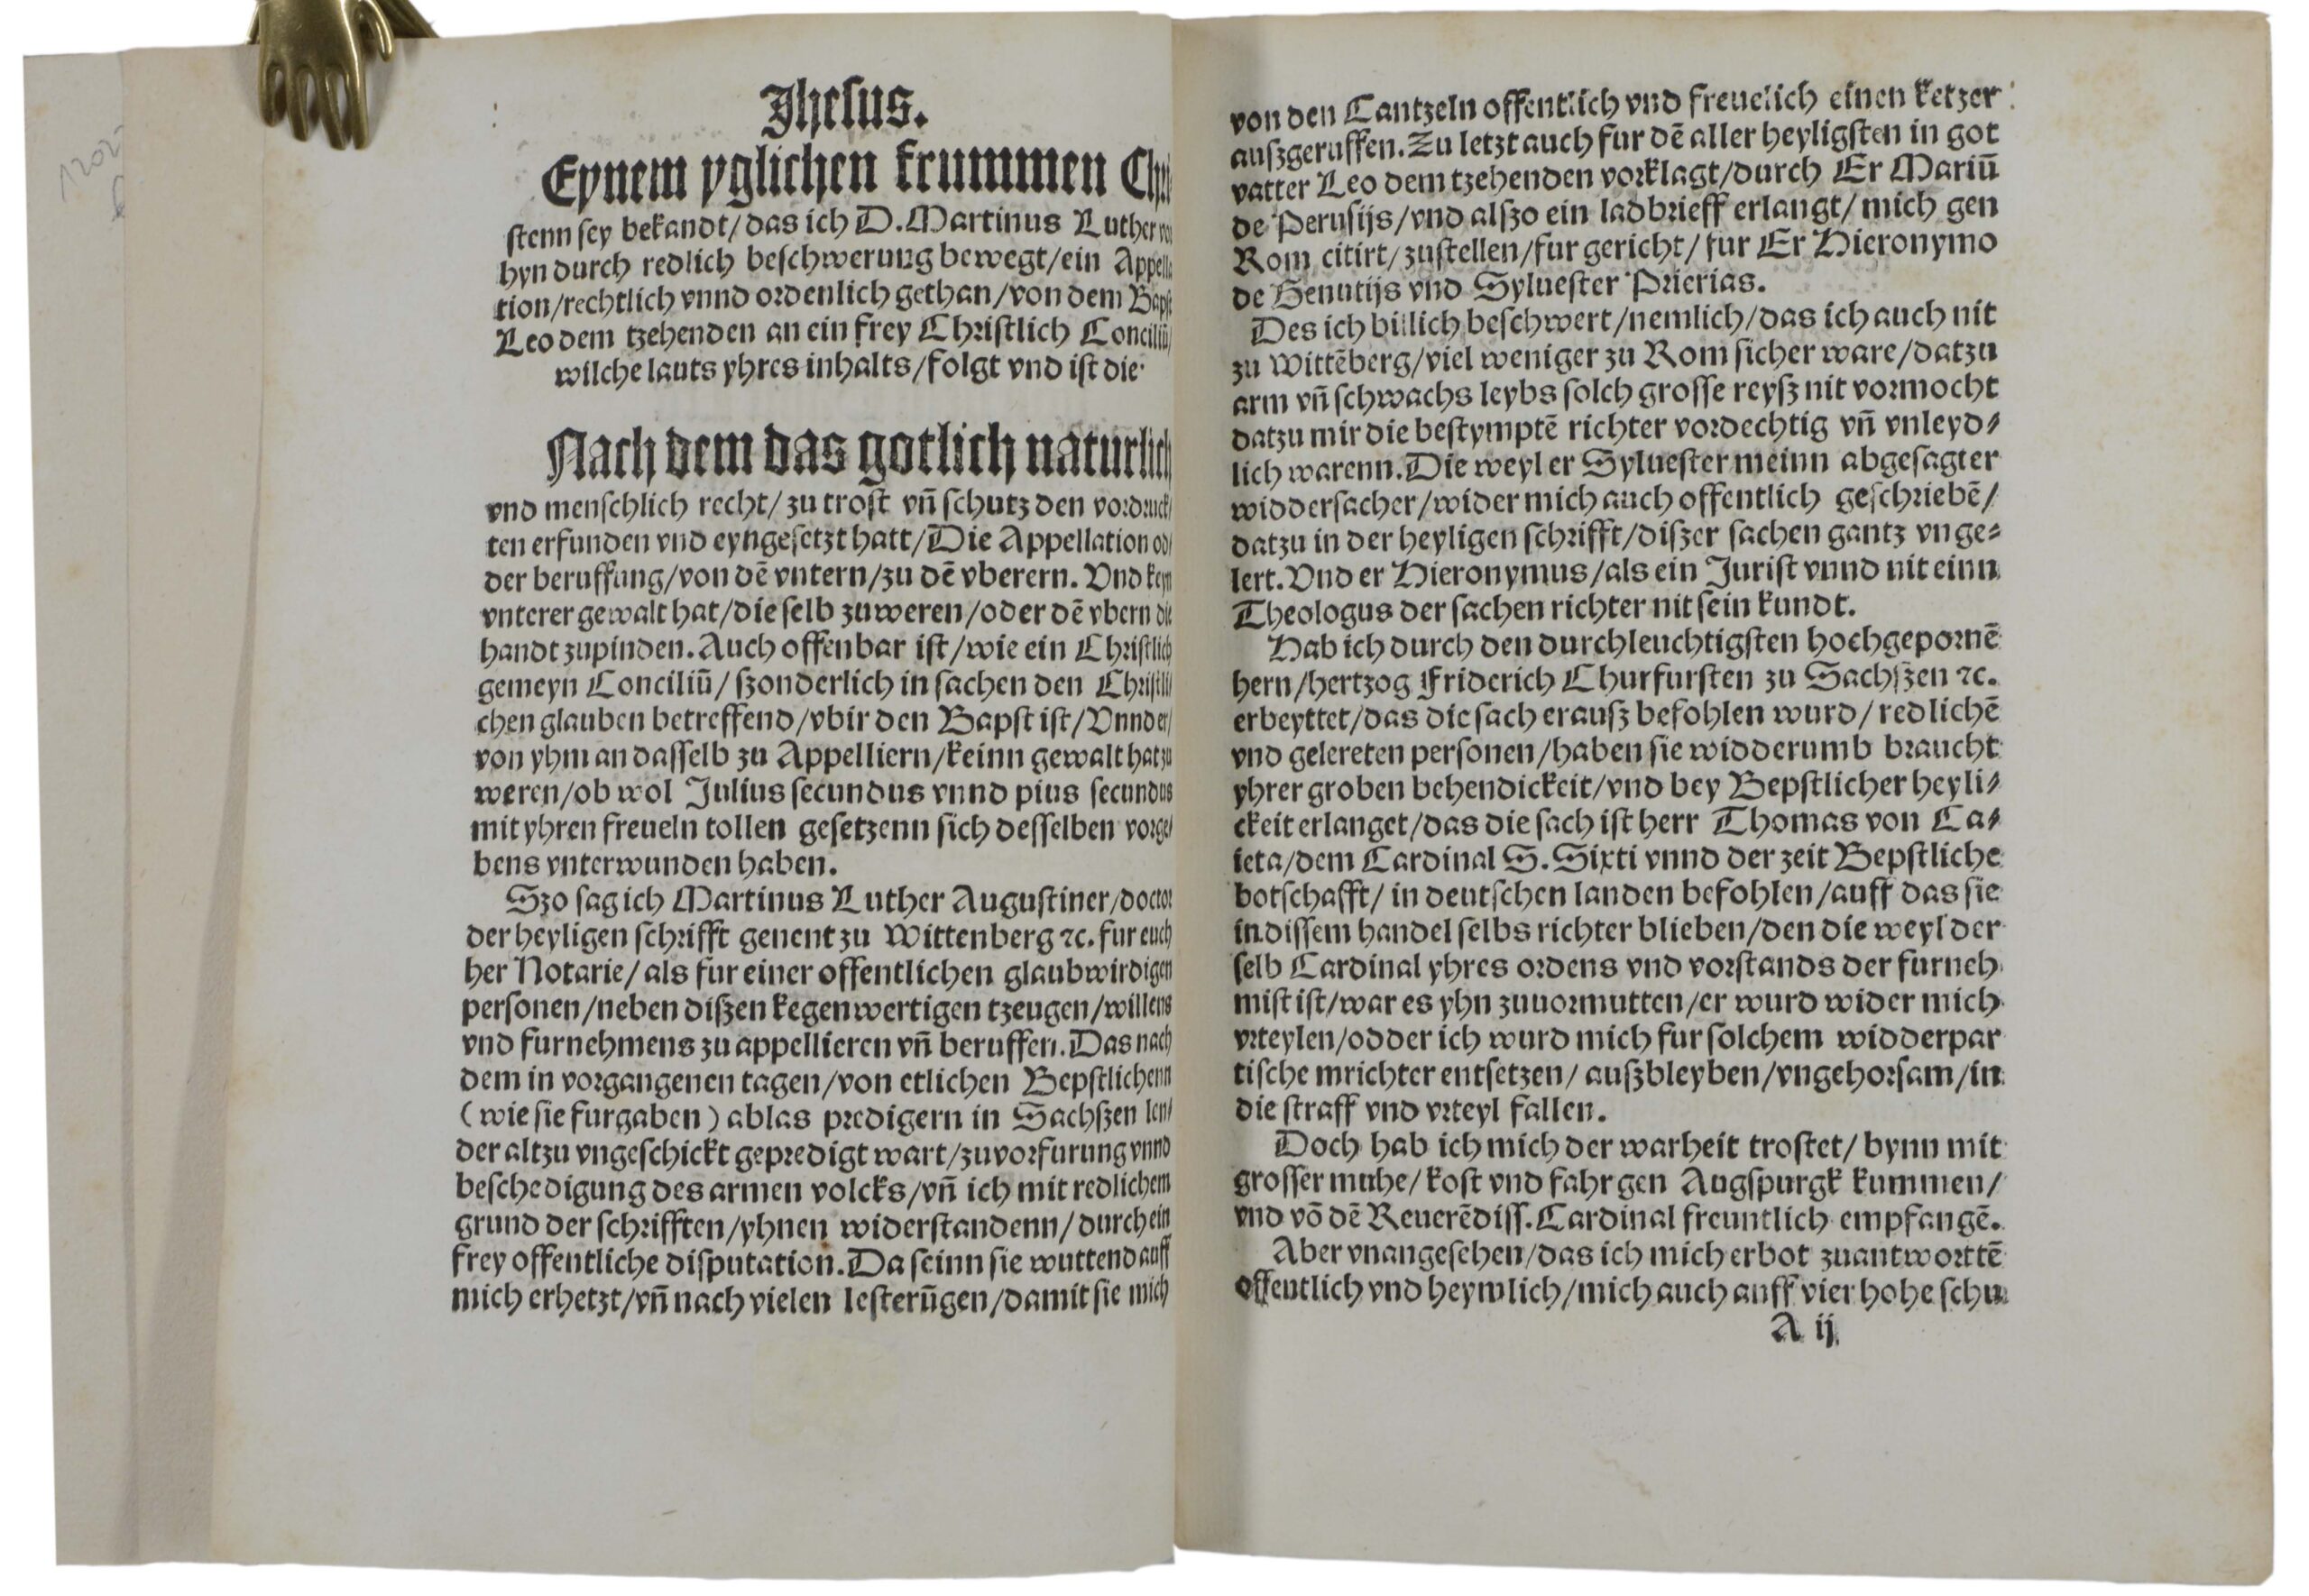 Jhesus.
Eynem yglichen frummen Chri
stenn sey bekandt/das ich D.Martinus Luther vor
hyn durch redlich beschwerung bewegt/ein Appella
tion/rechtlich vnnd ordenlich gethan/von dem Bapst
Leo dem tzehenden an ein frey Christlich Conciliū/
wilche lauts yhres inhalts/folgt vnd ist die
Nach dem das gotlich naturlich
vnd menschlich recht/zu trost vñ schutz den vordruck/
ten erfunden vnd eyngesetzt hatt/Die Appellation od/
der beruffung/von dē vntern/zu dē vberern. Vnd keyn
vnterer gewalt hat/die selb zuweren/oder dē vbern die
handt zupinden.Auch offenbar ist/wie ein Christlich
gemeyn Conciliū/szonderlich in sachen den Christli/
chen glauben betreffend/vbir den Bapst ist/Vnnd er/
von yhm an dasselb zu Appelliern/keinn gewalt hat zu
weren/ob wol Julius secundus vnnd pius secundus
mit yhren freueln tollen gesetzenn sich desselben vorge/
bens vnterwunden haben.
Szo sag ich Martinus Luther Augustiner/doctor
der heyligen schrifft genent zu Wittenberg ⁊c. fur euch
her Notarie/als fur einer offentlichen glaubwirdigen
personen/neben diszen kegenwertigen tzeugen/willens
vnd furnehmens zu appellieren vñ beruffen.Das nach
dem in vorgangenen tagen/von etlichen Bepstlichenn
(wie sie furgaben) ablas predigern in Sachszen len/
der altzu vngeschickt gepredigt wart/zuvorfurung vnnd
beschedigung des armen volcks/vñ ich mit redlichem
grund der schrifften/yhnen widerstandenn/durch ein
frey offentliche disputation.Da seinn sie wuttend auff
mich erhetzt/vñ nach vielen lesterūgen/damit sie mich
von den Cantzeln offentlich vnd freuelich einen ketzer
auszgeruffen.Zu letzt auch fur dē aller heyligsten in got
vatter Leo dem tzehenden vorklagt/durch Er Mariū
de Perusijs/vnd alszo ein ladbrieff erlangt/mich gen
Rom citirt/zustellen/fur gericht/fur Er Hieronymo
de Genutijs vnd Syluester Prierias.
Des ich billich beschwert/nemlich/das ich auch nit
zu Wittēberg/viel weniger zu Rom sicher ware/datzu
arm vñ schwachs leybs solch grosse reysz nit vormocht
datzu mir die bestymptē richter vordechtig vñ vnleyd/
lich warenn.Die weyl er Syluester meinn abgesagter
widdersacher/wider mich auch offentlich geschriebē/
datzu in der heyligen schrifft/diszer sachen gantz vnge=
lert.Vnd er Hieronymus/als ein Jurist vnnd nit einn
Theologus der sachen richter nit sein kundt.
Hab ich durch den durchleuchtigsten hochgepornē
hern/hertzog Friderich Churfursten zu Sachszen ⁊c.
erbeyttet/das die sach erausz befohlen wurd/redlichē
vnd gelereten personen/haben sie widderumb braucht
yhrer groben behendickeit/vnd bey Bepstlicher heyli/
ckeit erlanget/das die sach ist herr Thomas von Ca/
ieta/dem Cardinal S.Sixti vnnd der zeit Bepstliche
botschafft/in deutschen landen befohlen/auff das sie
in dissem handel selbs richter blieben/den die weyl der
selb Cardinal yhres ordens vnd vorstands der furneh
mist ist/war es yhn zuuormutten/er wurd wider mich
vrteylen/odder ich wurd mich fur solchem widderpar
tische mrichter entsetzen/auszbleyben/vngehorsam/in
die straff vnd vrteyl fallen.
Doch hab ich mich der warheit trostet/bynn mit
grosser muhe/kost vnd fahr gen Augspurgk kummen/
vnd vō dē Reuerēdiss.Cardinal freuntlich empfangē.
Aber vnangesehen/das ich mich erbot zuantworttē
offentlich vnd heymlich/mich auch auff vier hohe schu
A ij